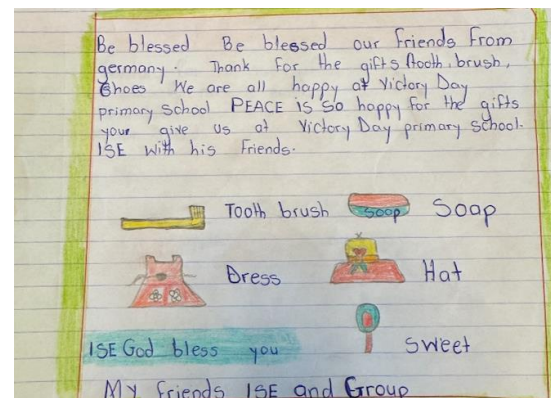 Be blessed Be blessed our friends from
germany. Thank for the gifts tooth brush,
Shoes We are all happy at Victory Day
primary School PEACE is so happy for the gifts
your give us at Victory Day primary school.
ISE with his Friends.
Tooth brush soap Soap
Dress Hat
ISE God bless you sweet
My friends ISE and Group